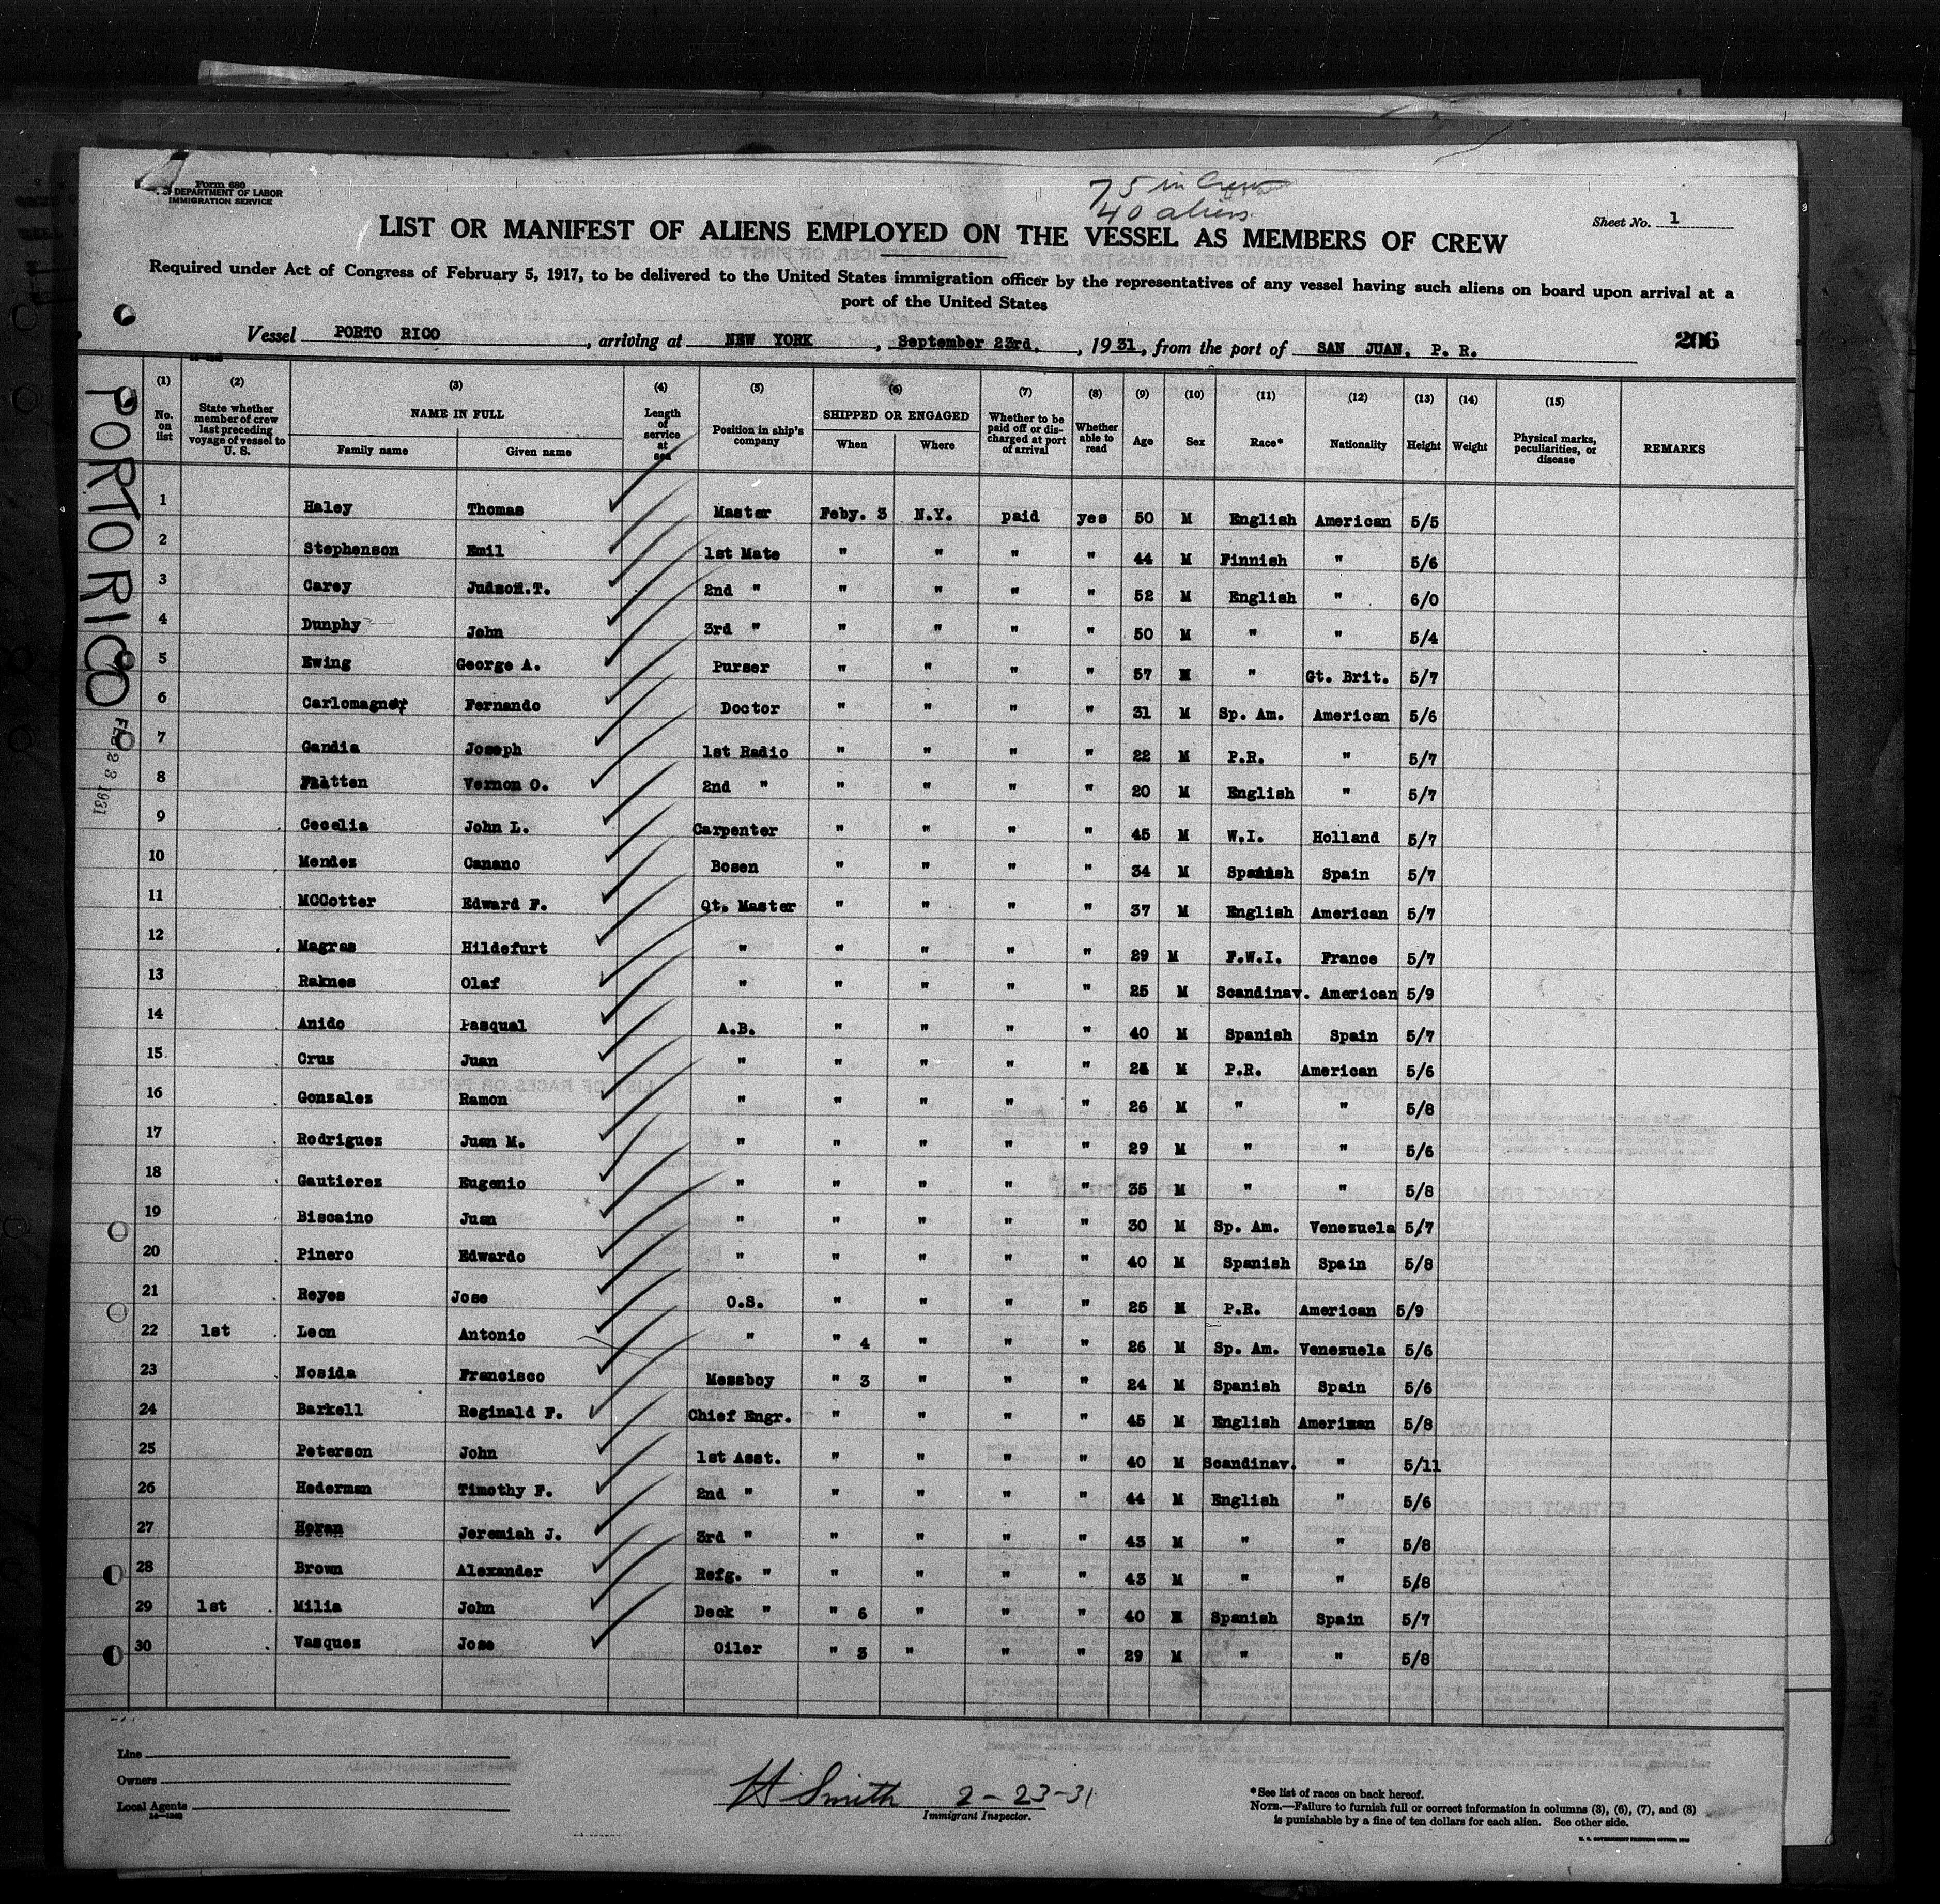 Form 680
U. S. DEPARTMENT OF LABOR
IMMIGRATION SERVICE
75 in Crew
40 aliens
Sheet No. 1
LIST OR MANIFEST OF ALIENS EMPLOYED ON THE VESSEL AS MEMBERS OF CREW
Required under Act of Congress of February 5, 1917, to be delivered to the United States immigration officer by the representatives of any vessel having such aliens on board upon arrival at a
port of the United States
Vessel PORTO RICO, arriving at NEW YORK, September 23rd, 1931, from the port of SAN JUAN, P. R.
206
PORTO RICO
FEB 23 1931
(1) (2) (3) (4) (5) (6) (7) (8) (9) (10) (11) (12) (13) (14) (15)
No. on list | State whether member of crew last preceding voyage of vessel to U. S. | NAME IN FULL Family name Given name | Length of service at sea | Position in ship's company | SHIPPED OR ENGAGED When Where | Whether to be paid off or discharged at port of arrival | Whether able to read | Age | Sex | Race* | Nationality | Height | Weight | Physical marks, peculiarities, or disease | REMARKS
1 Haley Thomas Master Feby. 3 N.Y. paid yes 50 M English American 5/5
2 Stephenson Emil 1st Mate " " " " 44 M Finnish " 5/6
3 Carey Judson.T. 2nd " " " " " 52 M English " 6/0
4 Dunphy John 3rd " " " " " 50 M " " 5/4
5 Ewing George A. Purser " " " " 57 M " Gt. Brit. 5/7
6 Fernando Doctor " " " " 31 M Sp. Am. American 5/6
7 Gandia Joseph 1st Radio " " " " 22 M P.R. " 5/7
8 Vernon O. 2nd " " " " " 20 M English " 5/7
9 Cecelia John L. Carpenter " " " " 45 M W.I. Holland 5/7
10 Mendez Canano Bosen " " " " 34 M Spanish Spain 5/7
11 MCCotter Edward F. Qt. Master " " " " 37 M English American 5/7
12 Magras Hildefurt " " " " " 29 M F.W.I. France 5/7
13 Raknes Olaf " " " " " 25 M Scandinav. American 5/9
14 Anido Pasqual A.B. " " " " 40 M Spanish Spain 5/7
15 Cruz Juan " " " " " M P.R. American 5/6
16 Gonzales Ramon " " " " " 26 M " " 5/8
17 Rodriguez Juan M. " " " " " 29 M " " 5/6
18 Gautierez Eugenio " " " " " 35 M " " 5/8
19 Biscaino Juan " " " " " 30 M Sp. Am. Venezuela 5/7
20 Pinero Edwardo " " " " " 40 M Spanish Spain 5/8
21 Reyes Jose O.S. " " " " 25 M P.R. American 5/9
22 1st Leon Antonio " " 4 " " " 26 M Sp. Am. Venezuela 5/6
23 Nosida Francisco Messboy " 3 " " " 24 M Spanish Spain 5/6
24 Barkell Reginald F. Chief Engr. " " " " 45 M English American 5/8
25 Peterson John 1st Asst. " " " " 40 M Scandinav. " 5/11
26 Hederman Timothy F. 2nd " " " " " 44 M English " 5/6
27 Horan Jeremiah J. 3rd " " " " " 43 M " " 5/8
28 Brown Alexander Refg. " " " " " 43 M " " 5/8
29 1st Milia John Deck " " 6 " " " 40 M Spanish Spain 5/7
30 Vasquez Jose Oiler " 3 " " " 29 M " " 5/8
Line
Owners
Local Agents
H Smith 2-23-31
Immigrant Inspector.
*See list of races on back hereof.
NOTE.—Failure to furnish full or correct information in columns (3), (6), (7), and (8)
is punishable by a fine of ten dollars for each alien. See other side.